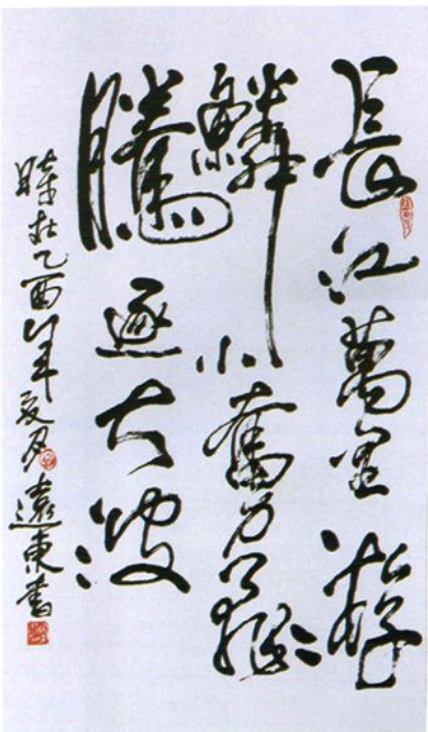 長江萬里游
鱗小奮力張
騰逐大波
時在乙酉年夏月遠東書